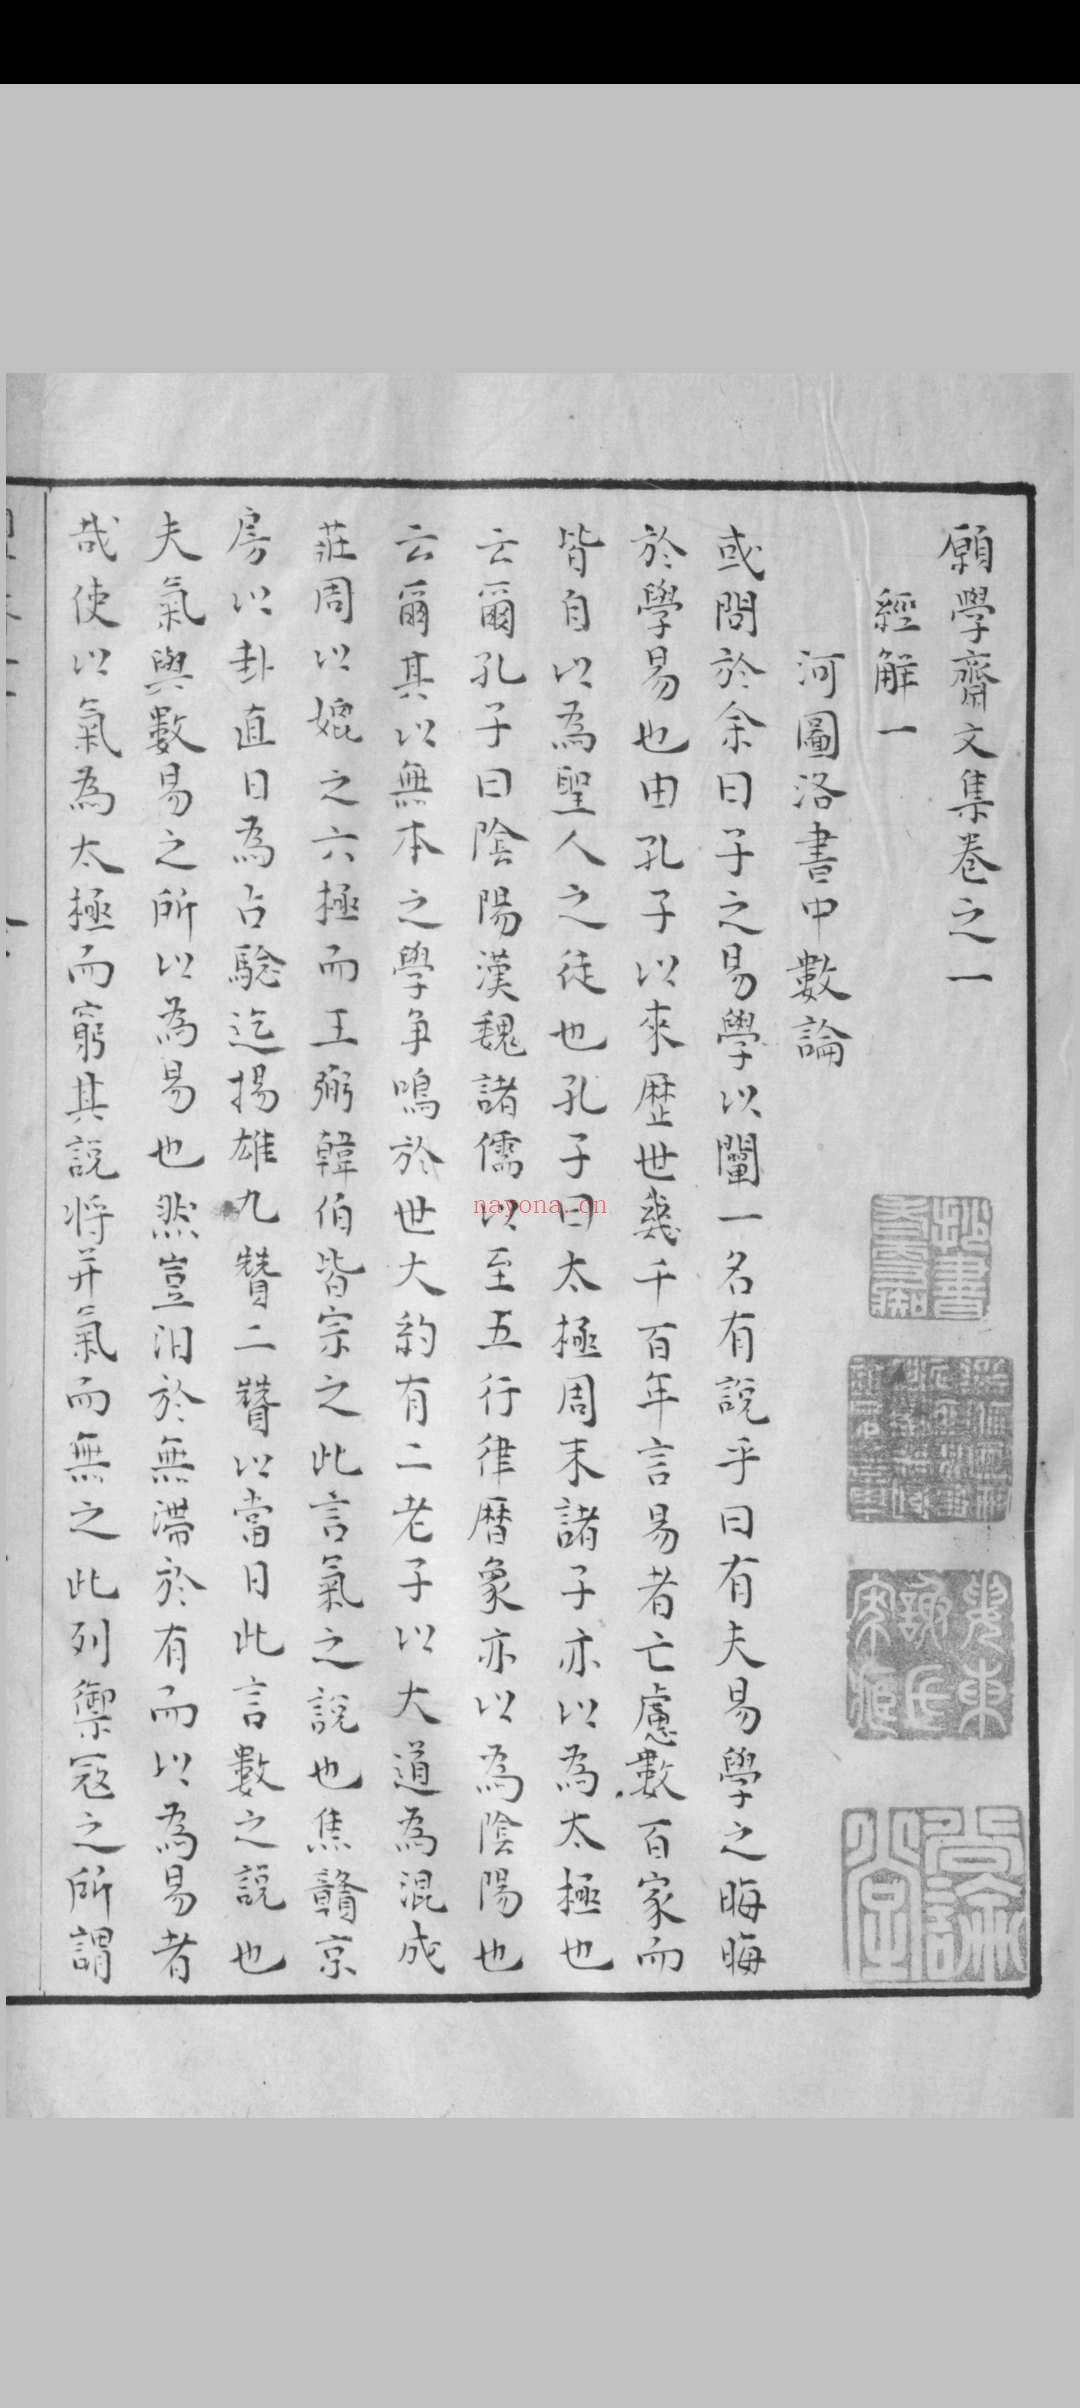 願學齋文集卷之一
經解一
河圖洛書中數論
或問於余曰子之易學以闡一名有說乎曰有夫易學之晦晦
於學易也由孔子以來歷世幾千百年言易者亡慮數百家而
皆自以為聖人之徒也孔子曰太極周末諸子亦以為太極也
云爾孔子曰陰陽漢魏諸儒以至五行律曆象亦以為陰陽也
云爾其以無本之學爭鳴於世大約有二老子以大道為混成
莊周以媲之六極而王弼韓伯皆宗之此言氣之說也焦贛京
房以卦直日為占驗迄揚雄九贊二贊以當日此言數之說也
夫氣與數易之所以為易也然豈汨於無滯於有而以為易者
哉使以氣為太極而窮其說將并氣而無之此列禦寇之所謂
nayona.cn